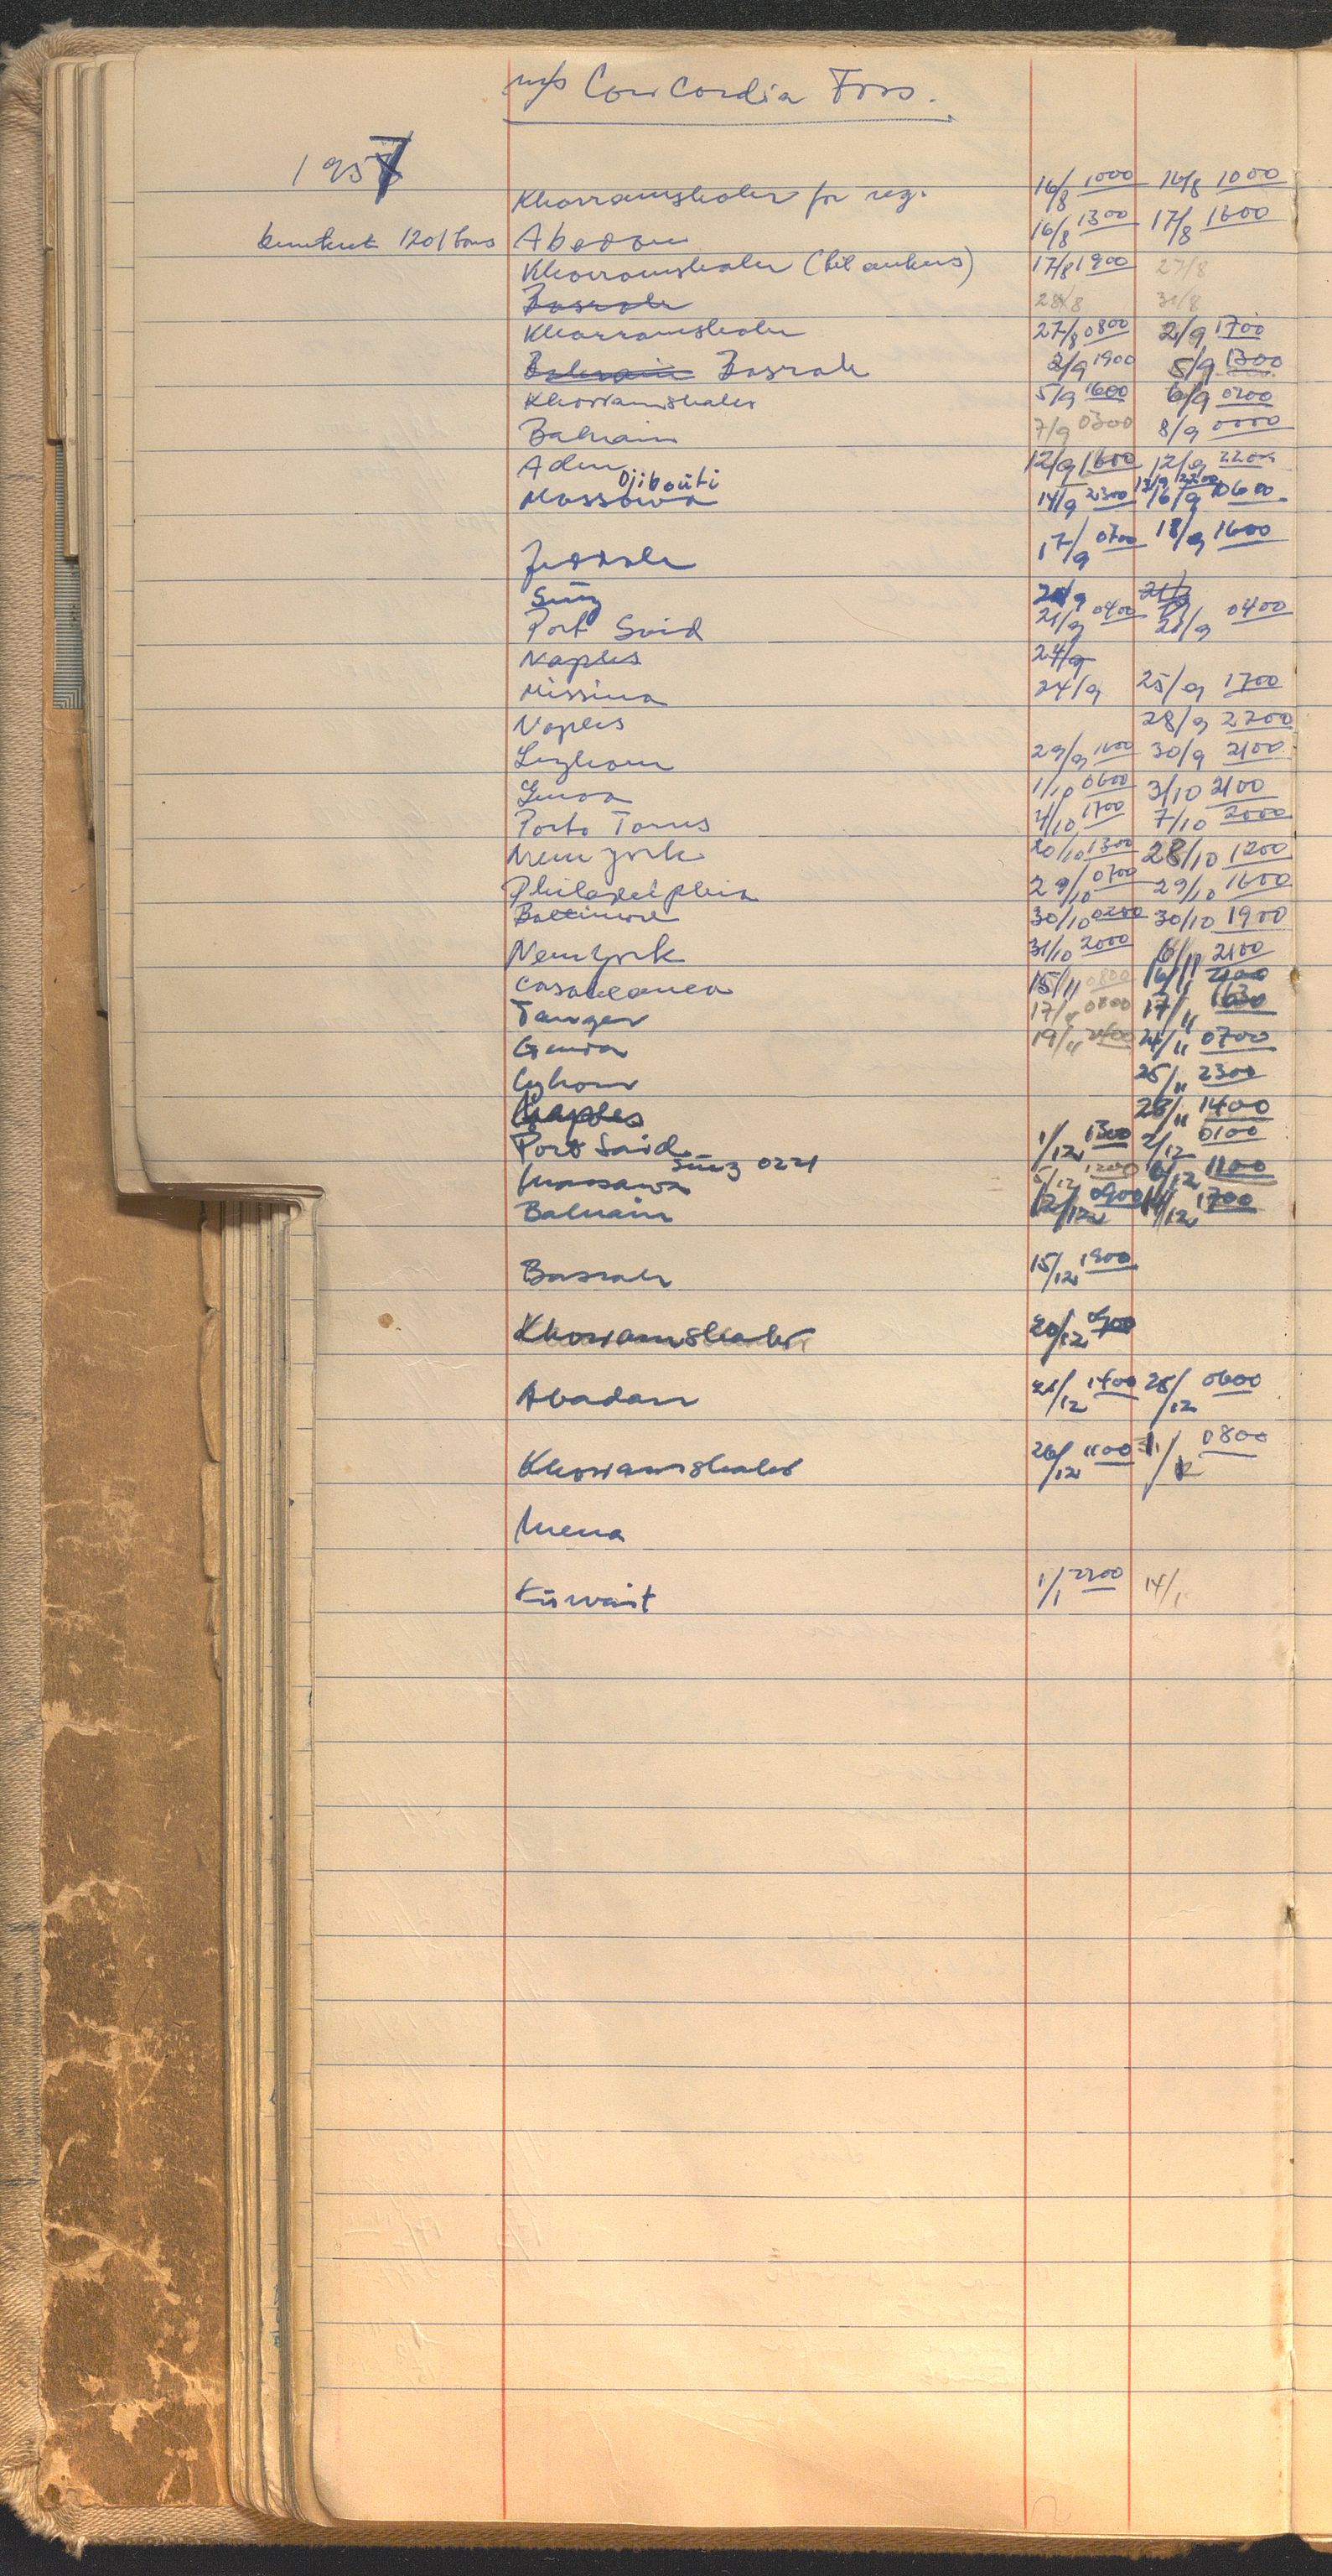 m/s Concordia Foss.
1957
Khorramshaher for reg. 16/8 1000 16/8 1000
bunkret 1201 tons Abadan 16/8 1300 17/8 1600
Khorramshaher (til ankers) 17/8 1900 27/8
Basrah 28/8 31/8
Khorramshaher 27/8 0800 2/9 1700
Bahrain Basrah 2/9 1900 5/9 1300
Khorramshaher 5/9 1600 6/9 0200
Bahrain 7/9 0300 8/9 0000
Aden 12/9 1600 12/9 2200
Djibouti 13/9 2200
Massowa 14/9 2300 16/9 0600
Jeddah 17/9 0700 18/9 1600
Suez 20/9
Port Said 21/9 0400 21/9 0400
Naples 24/9
Missina 24/9 25/9 1700
Naples 28/9 2200
Leghorn 29/9 1600 30/9 2100
Genoa 1/10 0600 3/10 2100
Porto Torres 4/10 1700 7/10 2000
New York 20/10 1300 28/10 1200
Philadelphia 29/10 0700 29/10 1600
Baltimore 30/10 0200 30/10 1900
New York 31/10 2000 6/11 2100
Casablanca 15/11 0800 16/11 2100
Tanger 17/11 0800 17/11 1630
Genoa 19/11 2400 24/11 0700
Leghorn 25/11 2300
Naples 28/11 1400
Port Said 1/12 1300 2/12 0100
Suez 0221
Massawa 5/12 1200 6/12 1100
Bahrain 12/12 0900 14/12 1700
Basrah 15/12 1900
Khorramshaher 20/12 0900
Abadan 21/12 1400 25/12 0600
Khorramshaher 26/12 1100 31/12 0800
Mena
Kuwait 1/1 2200 14/1